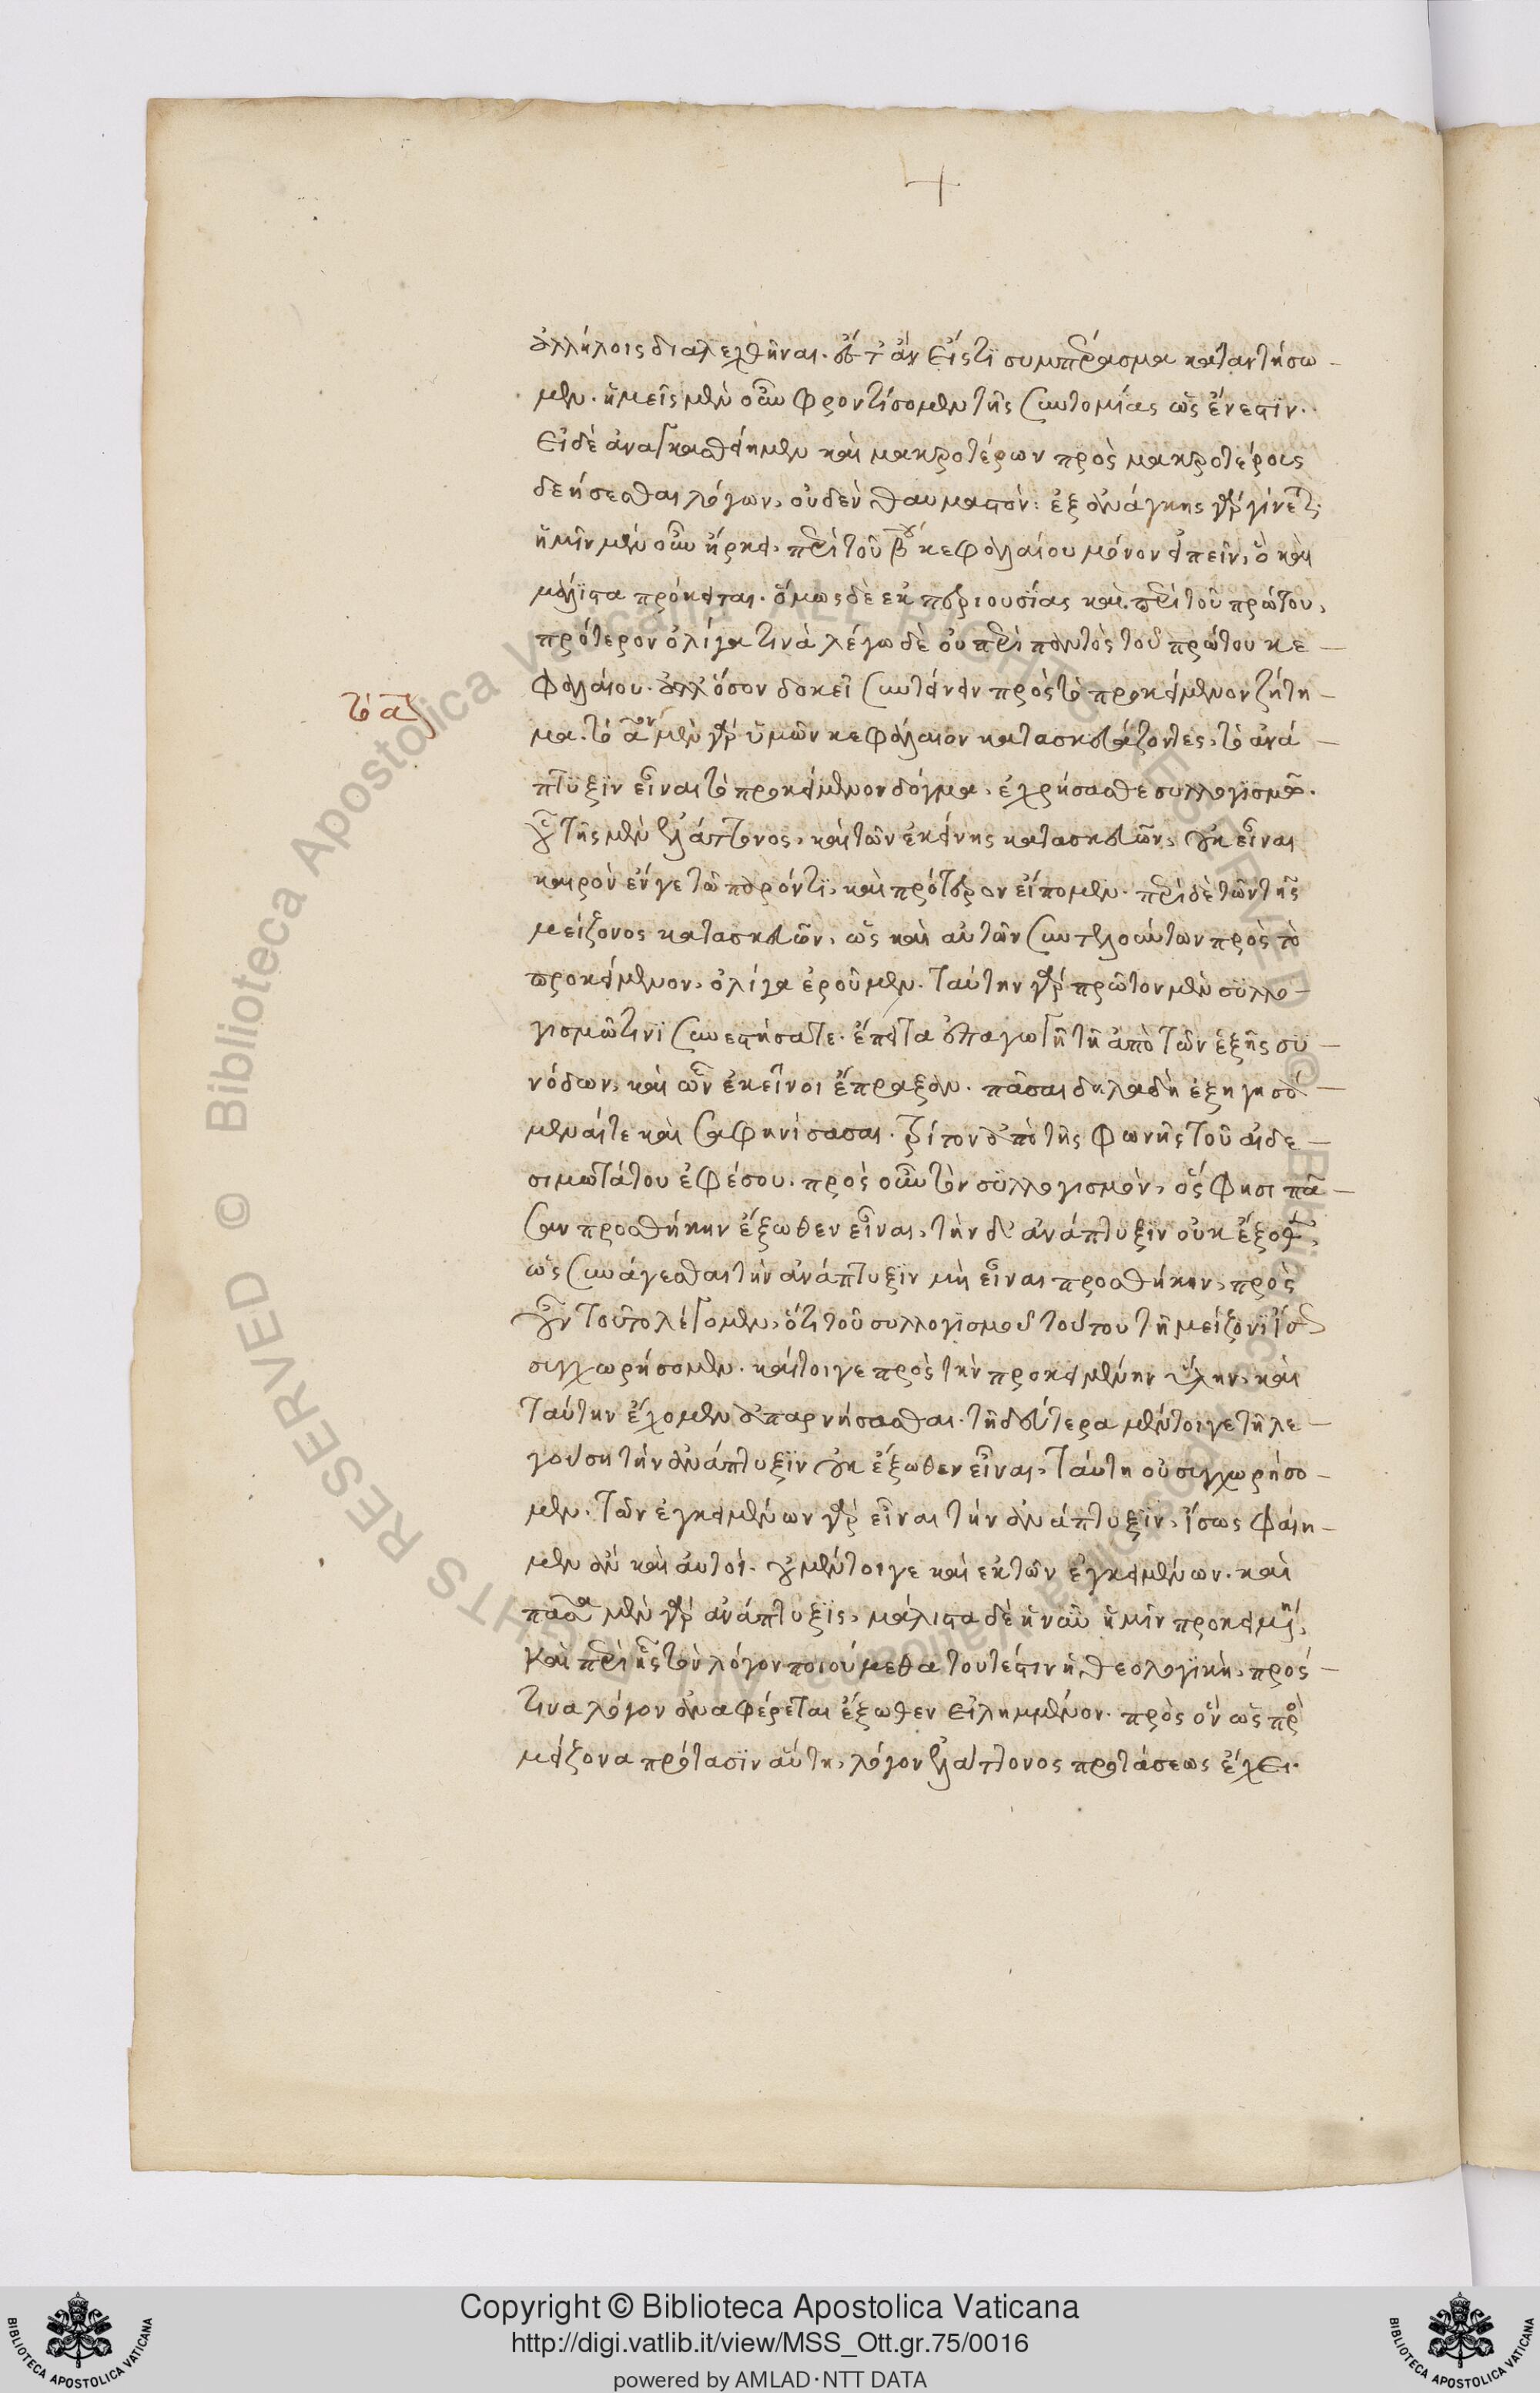 ἀλλήλοις διαλεχθῆναι. εἴ τ' ἂν εἴς τι συμπέρασμα καταντήσω-
μεν. ἡμεῖς μὲν οὖν φροντίσομεν τῆς συντομίας ὡς ἔνεστιν.
εἰ δὲ ἀναγκασθείημεν καὶ μακροτέρων πρὸς μακροτέρους
δεήσεσθαι λόγων, οὐδὲν θαυμαστόν· ἐξ ἀνάγκης γὰρ γίνεται.
ἡμῖν μὲν οὖν ἤρκει, περὶ τοῦ β̅ου κεφαλαίου μόνον εἰπεῖν, ὃ καὶ
μάλιστα πρόκειται. ὅμως δὲ ἐκ περιουσίας καὶ περὶ τοῦ πρώτου,
πρότερον ὀλίγα τινὰ λέγω δὲ οὐ περὶ παντὸς τοῦ πρώτου κε-
φαλαίου. ἀλλ' ὅσον δοκεῖ συντείνειν πρὸς τὸ προκείμενον ζήτη-
τὸ α
μα. τὸ α̅ον μὲν γὰρ ὑμῶν κεφάλαιον κατασκευάζοντες, τὸ ἀνά-
πτυξιν εἶναι τὸ προκείμενον δόγμα, ἐχρήσασθε συλλογισμῷ.
οὗ τῆς μὲν ἐλάττονος, καὶ τῶν ἐκείνης κατασκευῶν, οὐκ εἶναι
καιρὸν ἔν γε τῷ παρόντι, καὶ πρότερον εἴπομεν. περὶ δὲ τῶν τῆς
μείζονος κατασκευῶν, ὡς καὶ αὐτῶν συντελουσῶν πρὸς τὸ
προκείμενον, ὀλίγα ἐροῦμεν. ταύτην γὰρ πρῶτον μὲν συλλο-
γισμῷ τινι συνεστήσατε. ἔπειτα ἐπαγωγῇ τῇ ἀπὸ τῶν ἑξῆς συ-
νόδων, καὶ ὧν ἐκεῖναι ἔπραξαν. πᾶσαι δηλαδὴ ἐξηγησά-
μεναί τε καὶ σαφηνίσασαι. τρίτον ἀπὸ τῆς φωνῆς τοῦ αἰδε-
σιμωτάτου ἐφέσου. πρὸς οὖν τὸν συλλογισμὸν, ὅς φησι πᾶ-
σαν προσθήκην ἔξωθεν εἶναι, τὴν δ' ἀνάπτυξιν οὐκ ἔξωθεν,
ὡς συνάγεσθαι τὴν ἀνάπτυξιν μὴ εἶναι προσθήκην, πρὸς
οὖν τοῦτο λέγομεν, ὅτι τοῦ συλλογισμοῦ τούτου τῇ μείζονι ἴσως
συγχωρήσομεν. καίτοιγε πρὸς τὴν προκειμένην ὕλην, καὶ
ταύτην ἔχομεν ἀπαρνήσασθαι. τῇ δευτέρᾳ μέντοιγε τῇ λε-
γούσῃ τὴν ἀνάπτυξιν οὐκ ἔξωθεν εἶναι, ταύτῃ οὐ συγχωρήσο-
μεν. τῶν ἐγκειμένων γὰρ εἶναι τὴν ἀνάπτυξιν, ἴσως φαίη-
μεν ἂν καὶ αὐτοί. οὐ μέντοιγε καὶ ἐκ τῶν ἐγκειμένων. καὶ
πᾶσα μὲν γὰρ ἀνάπτυξις, μάλιστα δὲ ἡ νῦν ἡμῖν προκειμένη,
καὶ περὶ ἧς τὸν λόγον ποιούμεθα τουτέστιν ἡ θεολογικὴ, πρός
τινα λόγον ἀναφέρεται ἔξωθεν εἰλημμένον. πρὸς ὃν ὡς πρὸς
μείζονα πρότασιν αὕτη, λόγον ἐλάττονος προτάσεως ἔχει.
Copyright © Biblioteca Apostolica Vaticana
http://digi.vatlib.it/view/MSS_Ott.gr.75/0016
powered by AMLAD·NTT DATA